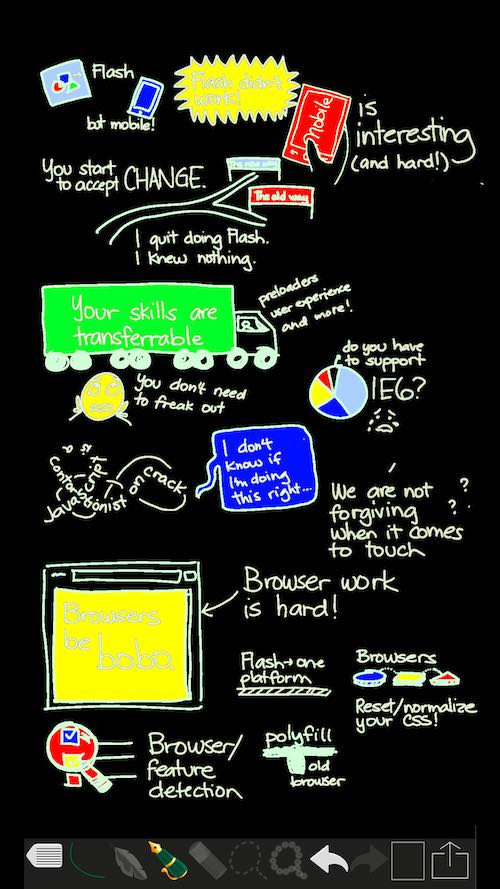 Flash
but mobile!
Flash didn't
work!
Mobile
is
interesting
(and hard!)
You start
to accept CHANGE.
The new way
The old way
I quit doing Flash.
I knew nothing.
Your skills are
transferrable
preloaders
user experience
and more!
You don't need
to freak out
do you have
to support
IE6?
Javascript
is a
contortionist
on crack
I don't
know if
I'm doing
this right...
We are not
forgiving
when it comes
to touch
? ? ?
Browsers
be bobo.
Browser work
is hard!
Flash → one
platform
Browsers
Reset/normalize
your CSS!
Browser/
feature
detection
polyfill
old
browser